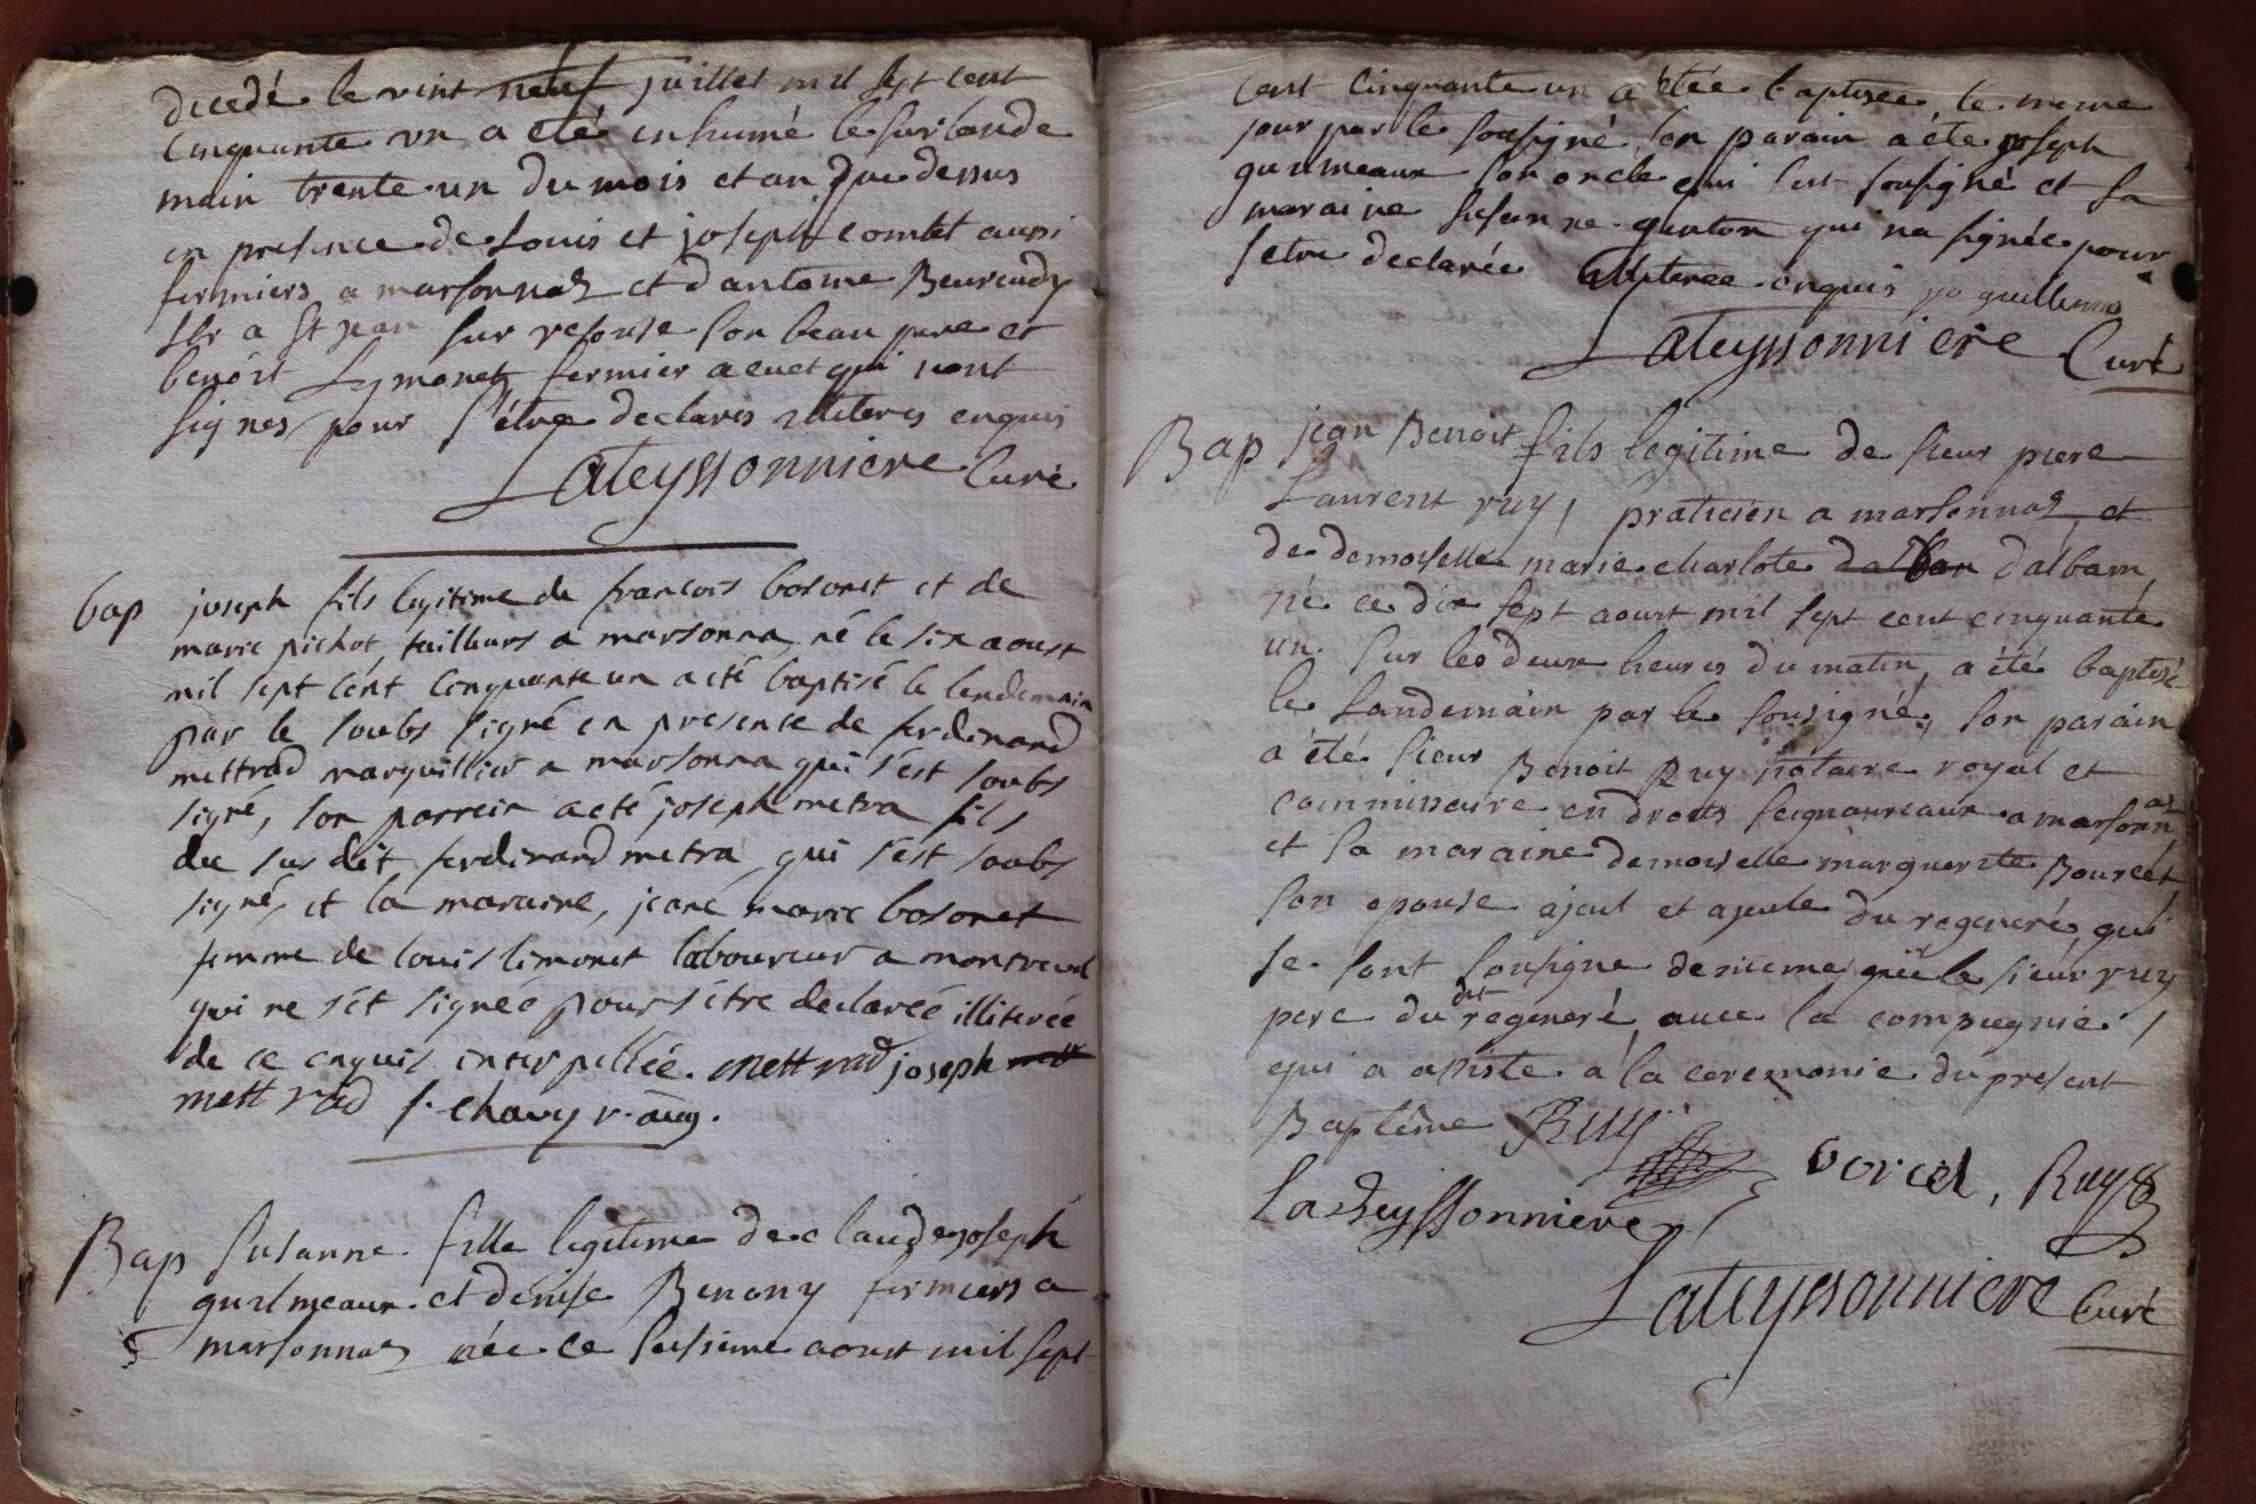 decedé le vint neuf juillet mil sept cent
cinquante un a eté inhumé le surlande
main trente un du mois et an que dessus
en presence de Louis et joseph comtet aussi
fermiers a marsonnas et d'antoine
a st jean sur resouse son beau pere et
benoit Lymonet fermier a cuet qui n'ont
signes pour s'être declares illiteres enquis
Lateyssonniere Curé
bap joseph fils legitime de francois bosonet et de
marie pichot, tailleurs a marsonna, né le six aoust
mil sept cént cinquante un a eté baptisé le lendemain
par le soubs signé en presence de ferdinand
mettrad marguillier a marsonna qui s'est soubs
signé, son parrein a eté joseph metra fils
du sus dit ferdinand metra qui s'est soubs
signé, et la maraine, jeane marie bosonet
femme de louis limonet laboureur a montrevel
qui ne s'ét signée pour s'être declareé illiterée
de ce enquis interpellée. mettrad joseph
mettrad f. chavy r. aug.
Bap Susanne fille legitime de claude joseph
guilmeaux et denise Benony fermiers a
marsonnas née ce sesieme aoust mil sept
cent cinquante un a étée baptisee le meme
jour par le sousigné, son parain a éte joseph
guilmeaux son oncle qui s'est sousigné et sa
maraine susanne guiton qui n'a signée pour
s'etre declarée illiteree enquis jo guillemo
Lateyssonniere Curé
Bap jean Benoit fils legitime de sieur piere
Laurent ruy, praticien a marsonnas et
de demoiselle marie charlote dalban d'albam
né ce dix sept aoust mil sept cent cinquante
un sur les deux heures du matin, a été baptisé
le Landemain par le sousigné, son parain
a été sieur Benoit Ruy notaire royal et
commissaire en droits seigneuriaux a marsonnas
et sa maraine demoiselle marguerite Bourcet
son epouse ajeul et ajeule du regeneré, qui
se sont sousigne de meme que le sieur ruy
pere du dit regeneré avec la compagnie
qui a assiste a la ceremonie du present
Baptême Ruy
borcet, Ruy
La Teyssonniere
Lateyssonniere Curé